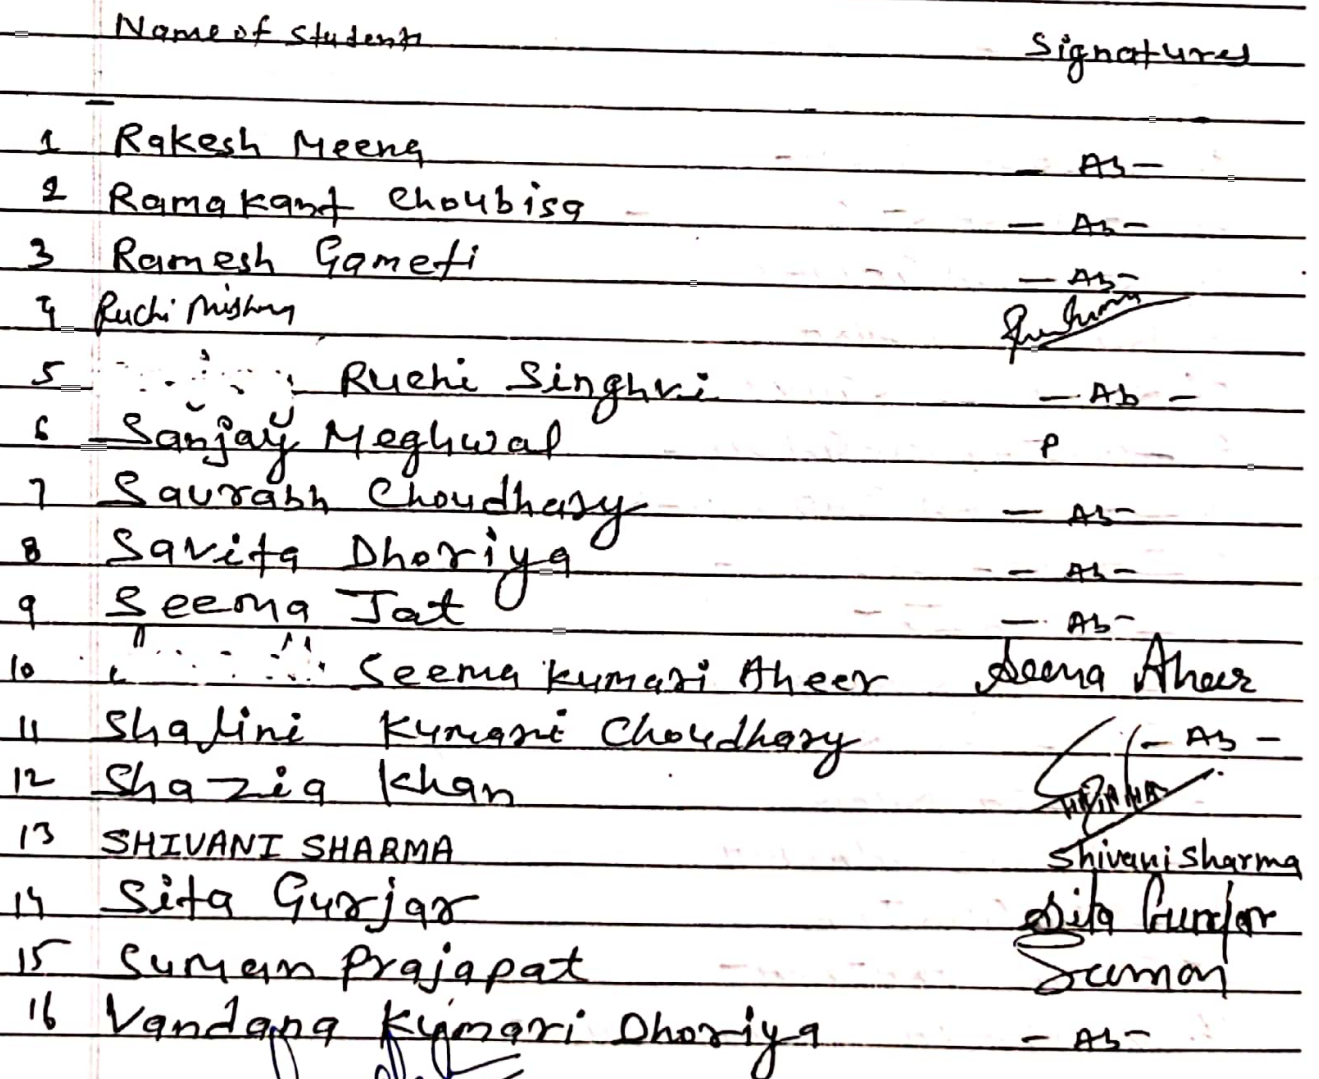 Name of Students Signatures
1 Rakesh Meena - Ab -
2 Ramakant Choubisa - Ab -
3 Ramesh Gameti - Ab -
4 Ruchi Mishra
5 Ruchi Singhvi - Ab -
6 Sanjay Meghwal P
7 Saurabh Choudhary - Ab -
8 Savita Dhoriya - Ab -
9 Seema Jat - Ab -
10 Seema Kumari Aheer Seema Aheer
11 Shalini Kumari Choudhary - Ab -
12 Shazia Khan
13 SHIVANI SHARMA Shivani Sharma
14 Sita Gurjar Sita Gurjar
15 Suman Prajapat Suman
16 Vandana Kumari Dhoriya - Ab -